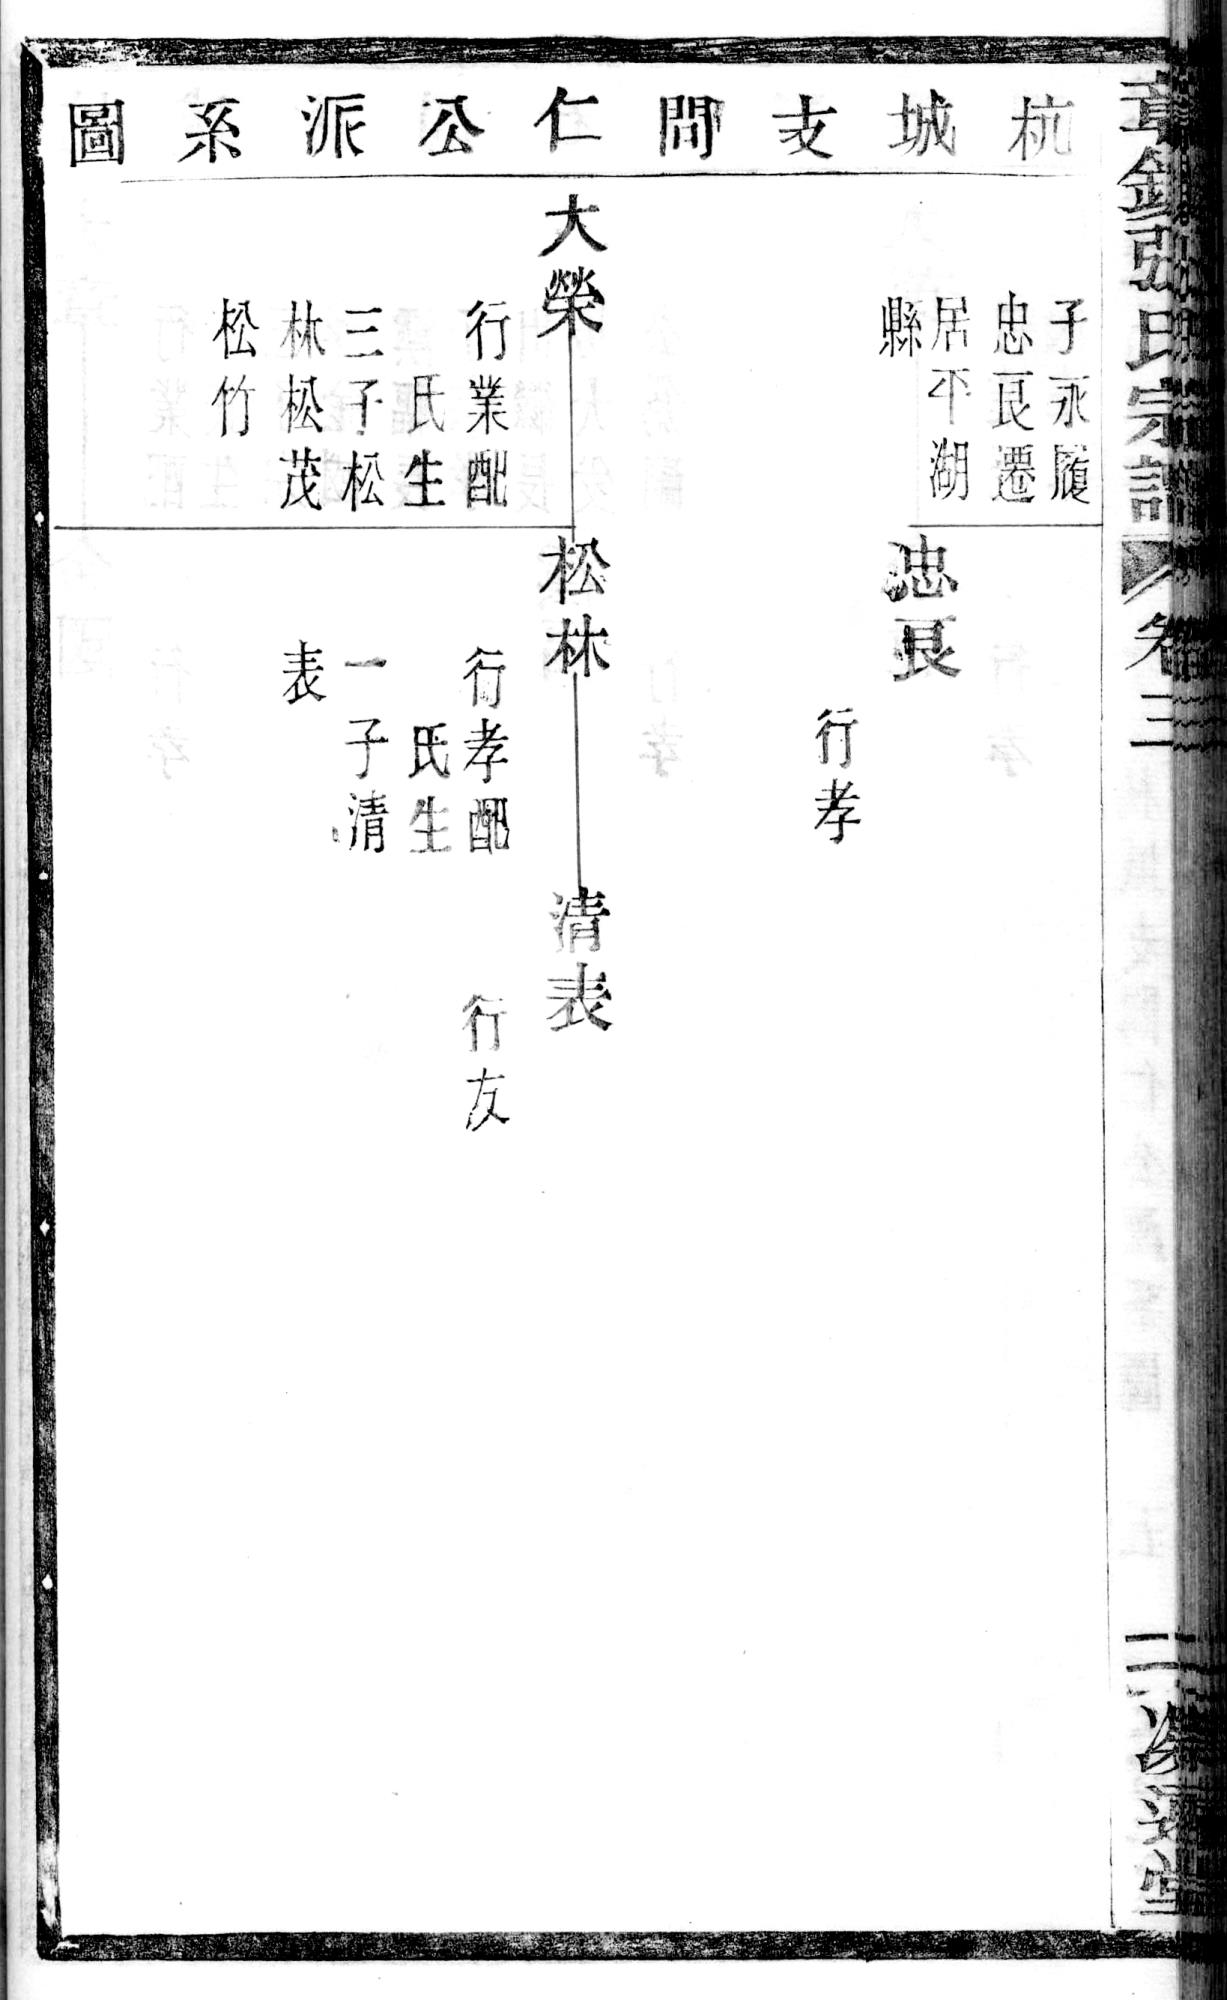 杭城支問仁公派系圖
子永履
忠良遷
居平湖
縣
忠良
行孝
大榮
行業配
氏生
三子松
林松茂
松竹
松林
行孝配
氏生
一子清
表
清表
行友
章鎮張氏宗譜
卷三
二
堂